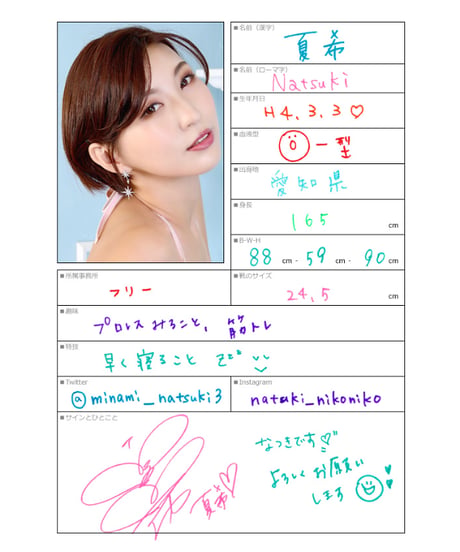 ■名前（漢字）
夏希
■名前（ローマ字）
Natsuki
■生年月日
H4.3.3♡
■血液型
O-型
■出身地
愛知県
■身長
165 cm
■B-W-H
88 cm - 59 cm - 90 cm
■所属事務所
フリー
■靴のサイズ
24.5 cm
■趣味
プロレスみること、筋トレ
■特技
早く寝ること zzz
■Twitter
@minami_natsuki3
■Instagram
natsuki_nikoniko
■サインとひとこと
夏希♡
なつきです♡
よろしくお願い
します